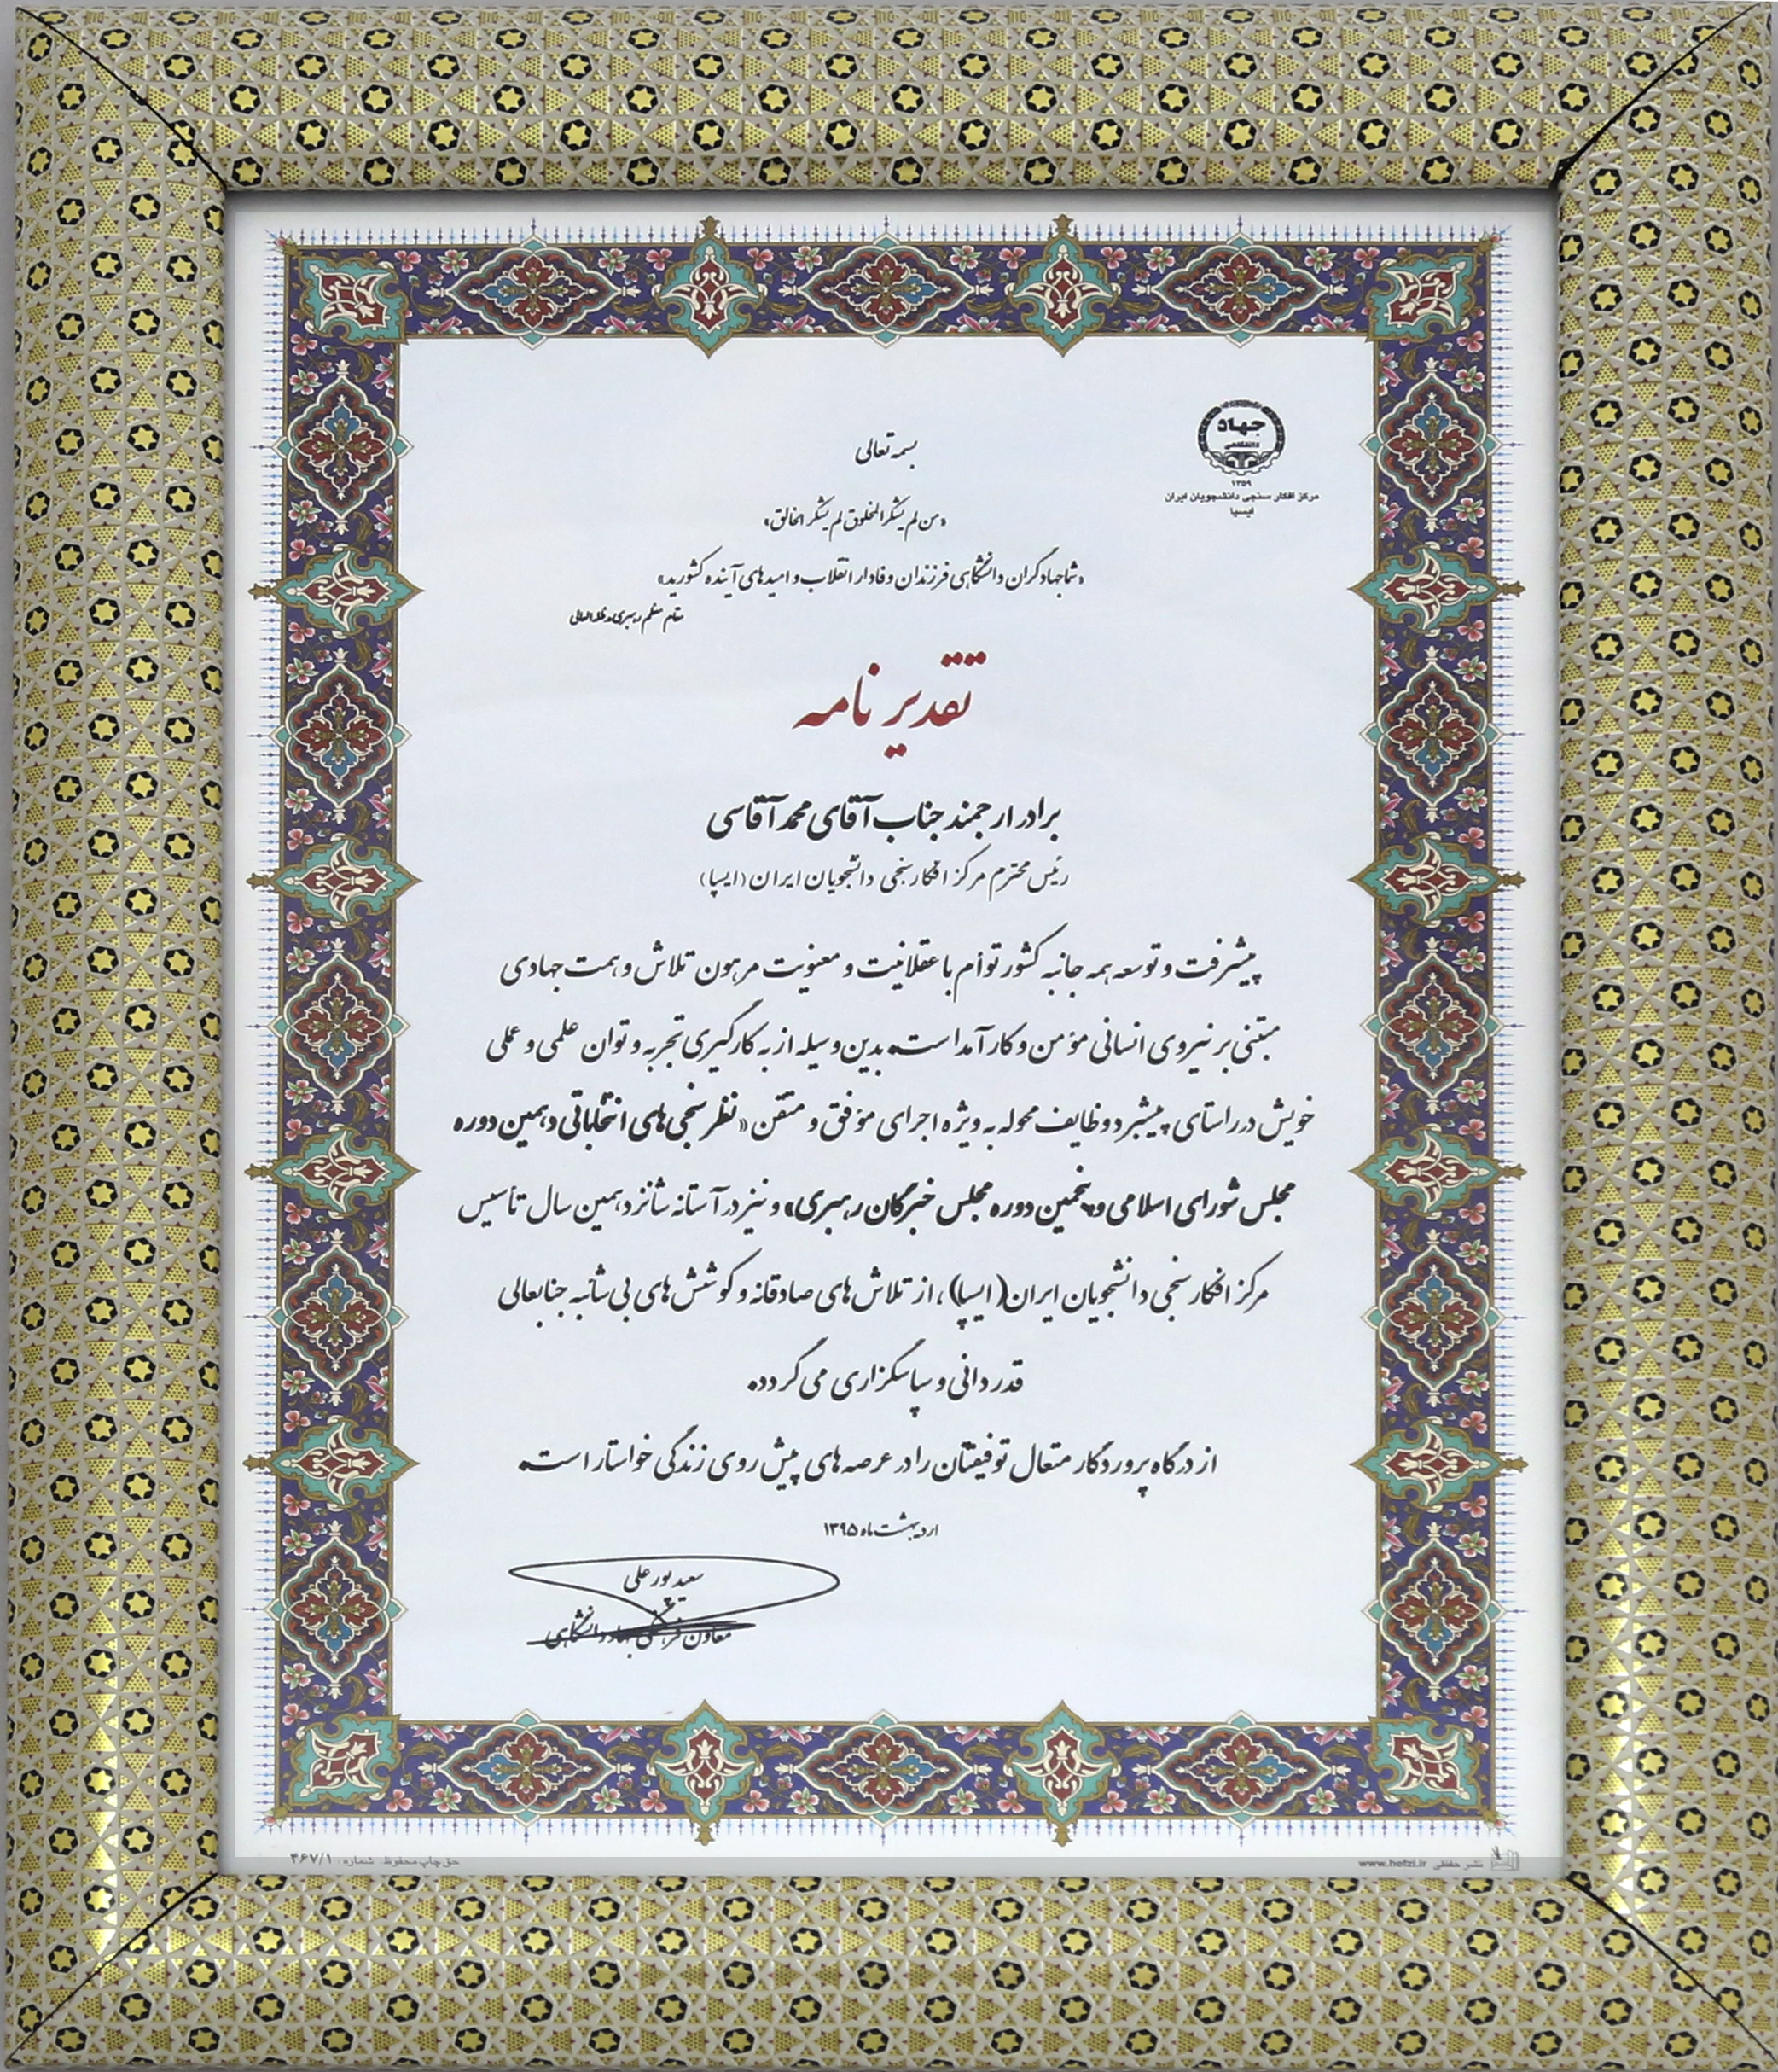 جهاد
دانشگاهی
۱۳۵۹
مرکز افکار سنجی دانشجویان ایران
ایسپا
بسمه تعالی
«من لم یشکر المخلوق لم یشکر الخالق»
«شما جهادگران دانشگاهی فرزندان وفادار انقلاب و امیدهای آینده کشورید»
مقام معظم رهبری مدظله العالی
تقدیر نامه
برادر ارجمند جناب آقای محمد آقاسی
رئیس محترم مرکز افکارسنجی دانشجویان ایران (ایسپا)
پیشرفت و توسعه همه جانبه کشور توأم با عقلانیت و معنویت مرهون تلاش و همت جهادی
مبتنی بر نیروی انسانی مؤمن و کارآمد است. بدین وسیله از به کارگیری تجربه و توان علمی و عملی
خویش در راستای پیشبرد وظایف محوله به ویژه اجرای مؤفق و متقن «نظرسنجی های انتخاباتی دهمین دوره
مجلس شورای اسلامی و پنجمین دوره مجلس خبرگان رهبری» و نیز در آستانه شانزدهمین سال تأسیس
مرکز افکارسنجی دانشجویان ایران (ایسپا)، از تلاش های صادقانه و کوشش های بی شائبه جنابعالی
قدردانی و سپاسگزاری می گردد.
از درگاه پروردگار متعال توفیقتان را در عرصه های پیش روی زندگی خواستار است.
اردیبهشت ماه ۱۳۹۵
سعید پور علی
معاون فرهنگی جهاد دانشگاهی
حق چاپ محفوظ. شماره: ۴۶۷/۱
نشر حفظی www.hefzi.ir